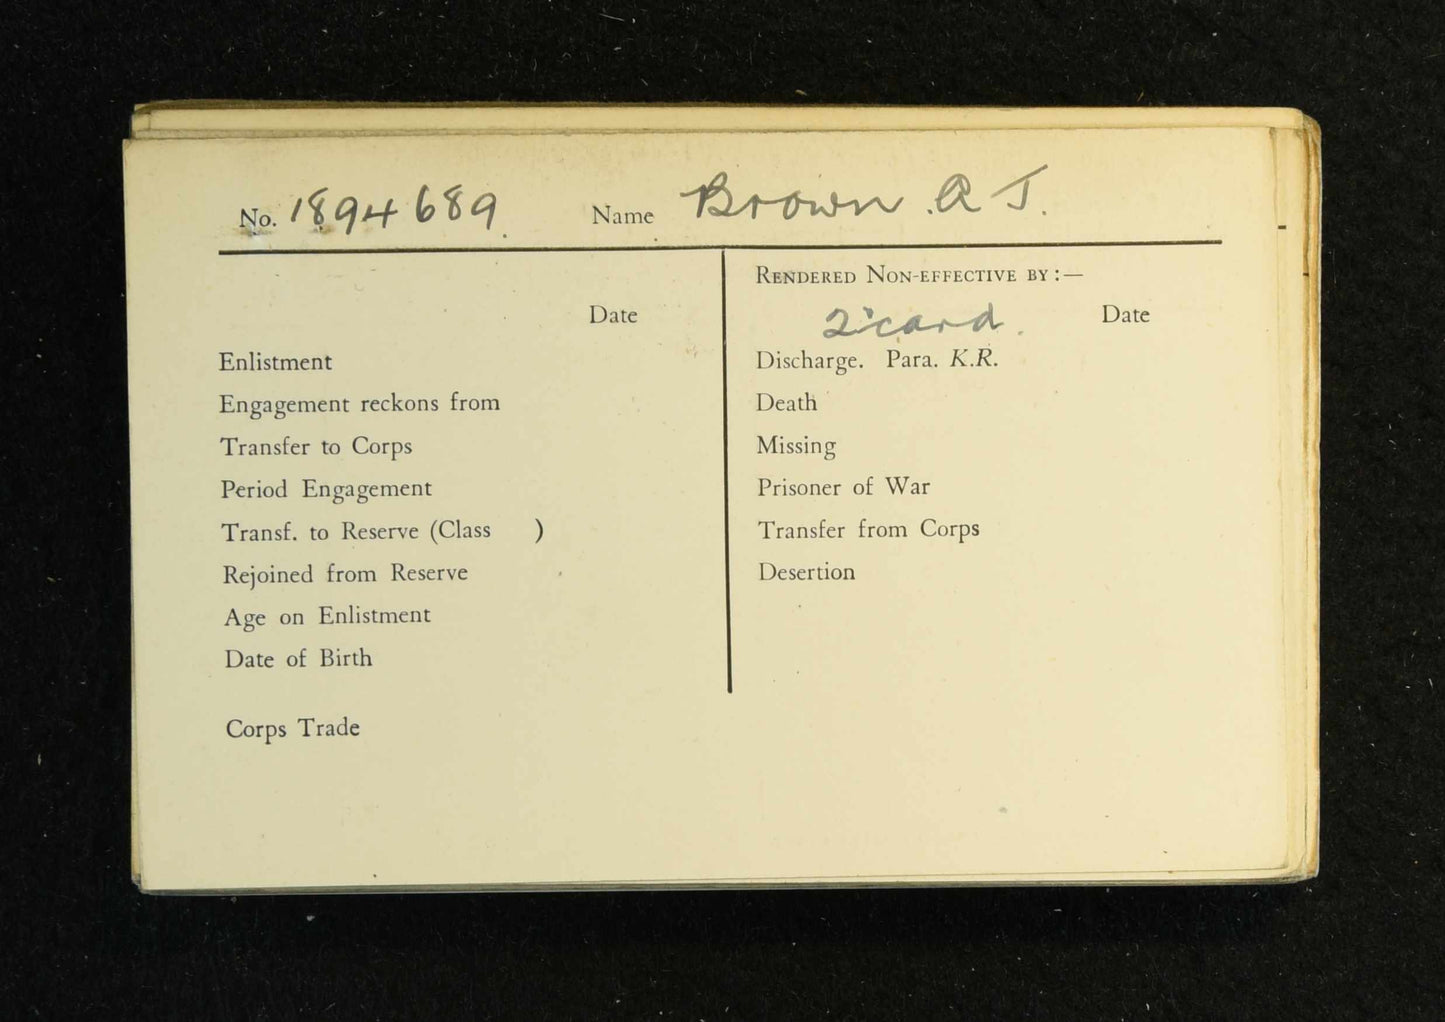 No. 1894689. Name Brown. A J.
Date
Enlistment
Engagement reckons from
Transfer to Corps
Period Engagement
Transf. to Reserve (Class )
Rejoined from Reserve
Age on Enlistment
Date of Birth
Corps Trade
RENDERED NON-EFFECTIVE BY :—
card. Date
Discharge. Para. K.R.
Death
Missing
Prisoner of War
Transfer from Corps
Desertion